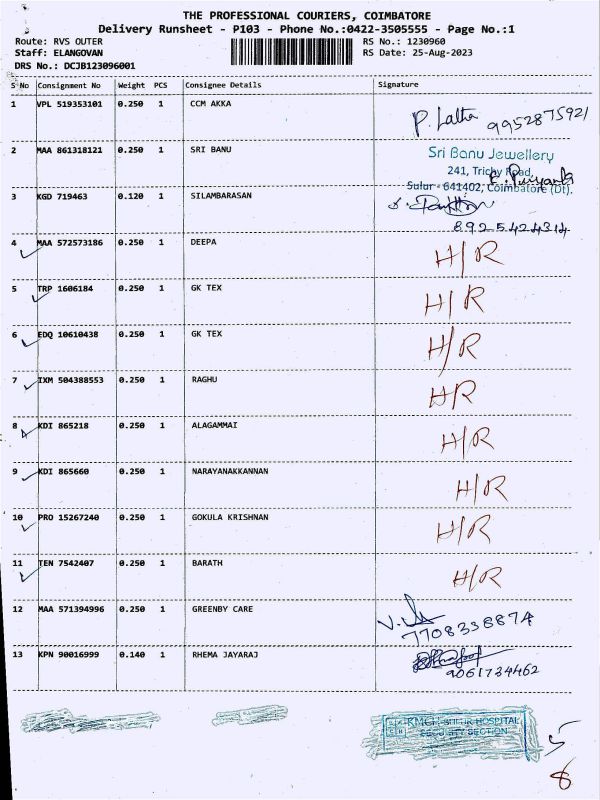 THE PROFESSIONAL COURIERS, COIMBATORE
Delivery Runsheet - P103 - Phone No.:0422-3505555 - Page No.:1
Route: RVS OUTER RS No.: 1230960
Staff: ELANGOVAN RS Date: 25-Aug-2023
DRS No.: DCJB123096001
S No Consignment No Weight PCS Consignee Details Signature
1 VPL 519353101 0.250 1 CCM AKKA
P. Latha 9952875921
2 MAA 861318121 0.250 1 SRI BANU
Sri Banu Jewellery
241, Trichy Road,
Sulur - 641402, Coimbatore (Dt).
3 KGD 719463 0.120 1 SILAMBARASAN
8925424314
4 MAA 572573186 0.250 1 DEEPA H/R
5 TRP 1606184 0.250 1 GK TEX H/R
6 EDQ 10610438 0.250 1 GK TEX H/R
7 IXM 504388553 0.250 1 RAGHU H/R
8 KDI 865218 0.250 1 ALAGAMMAI H/R
9 KDI 865660 0.250 1 NARAYANAKKANNAN H/R
10 PRO 15267240 0.250 1 GOKULA KRISHNAN H/R
11 TEN 7542407 0.250 1 BARATH H/R
12 MAA 571394996 0.250 1 GREENBY CARE
7708338874
13 KPN 90016999 0.140 1 RHEMA JAYARAJ
9061734462
HOSPITAL
SECURITY SECTION
5
8